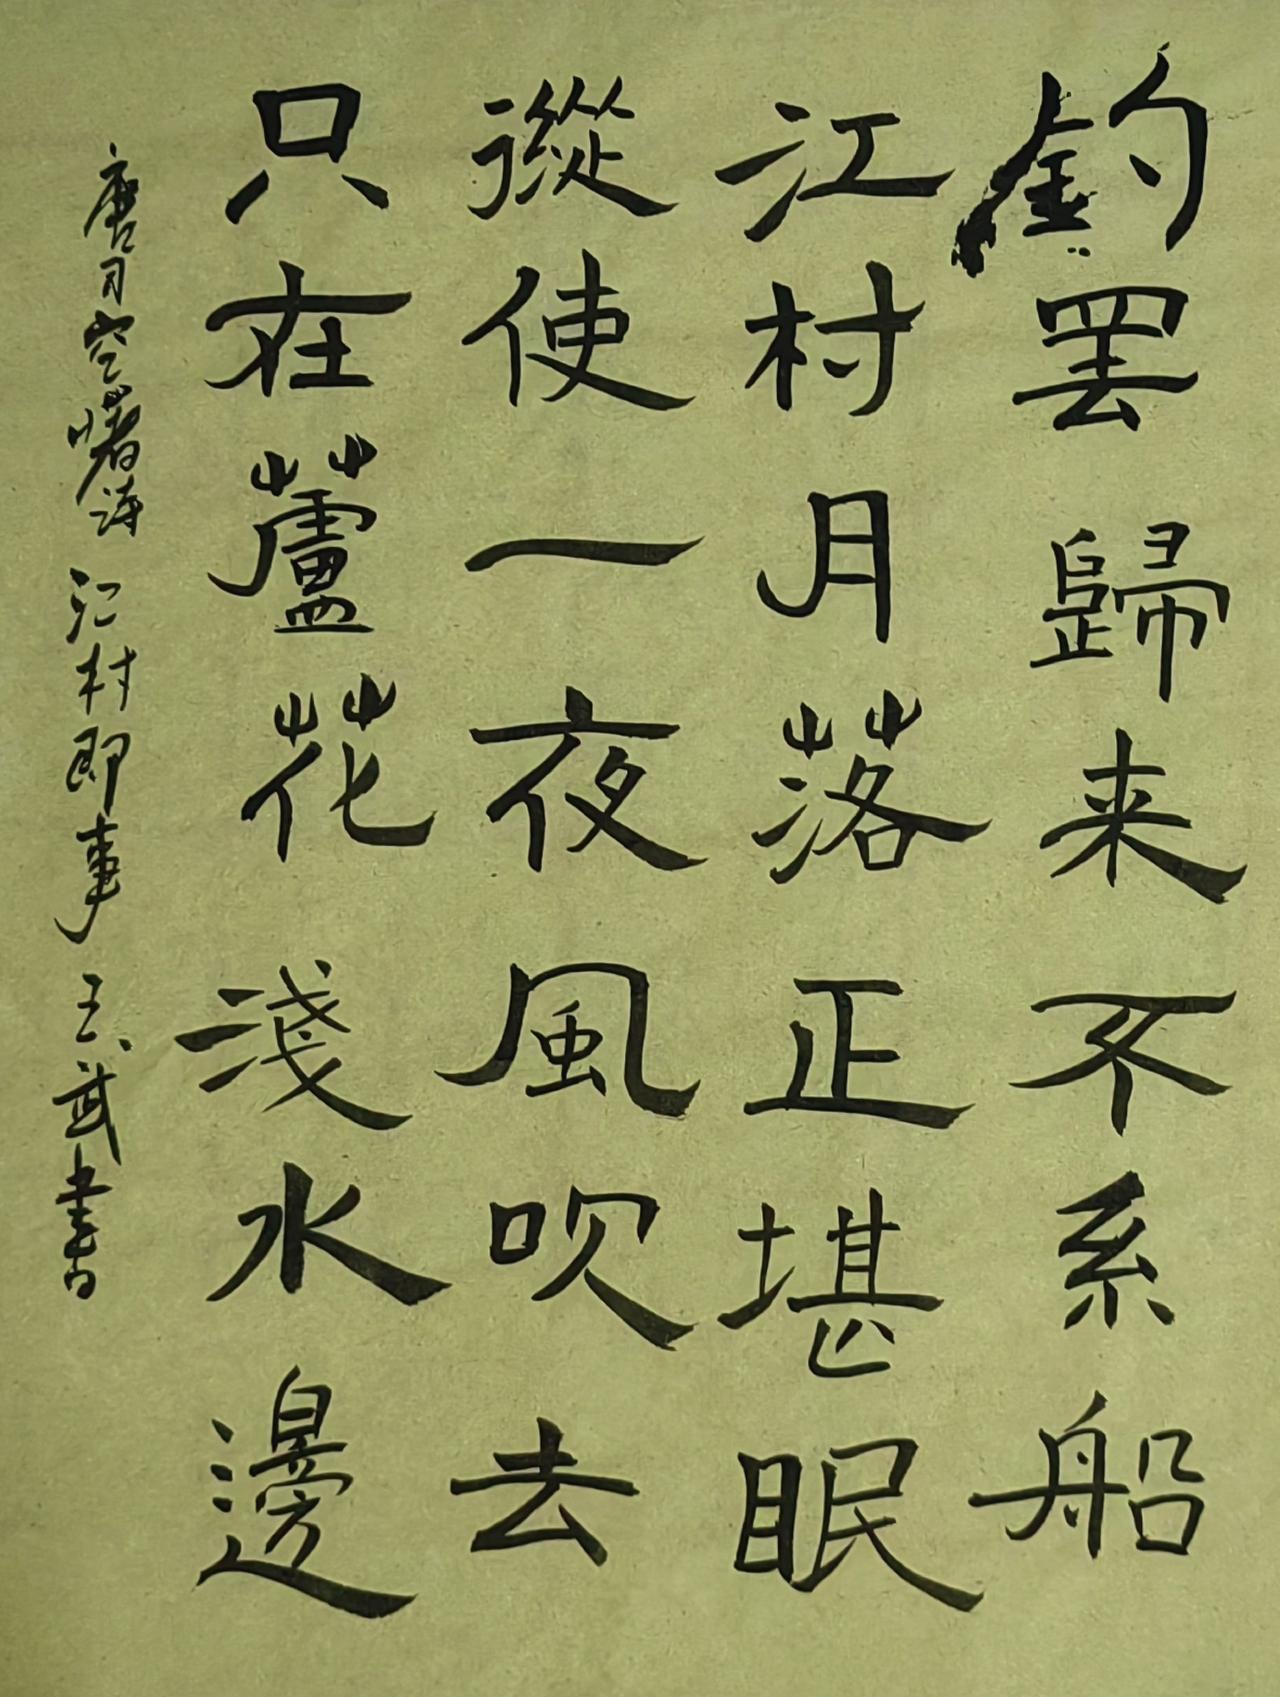 釣罢歸来不系船
江村月落正堪眠
從使一夜風吹去
只在蘆花淺水邊
唐司空曙诗 江村即事 王武書